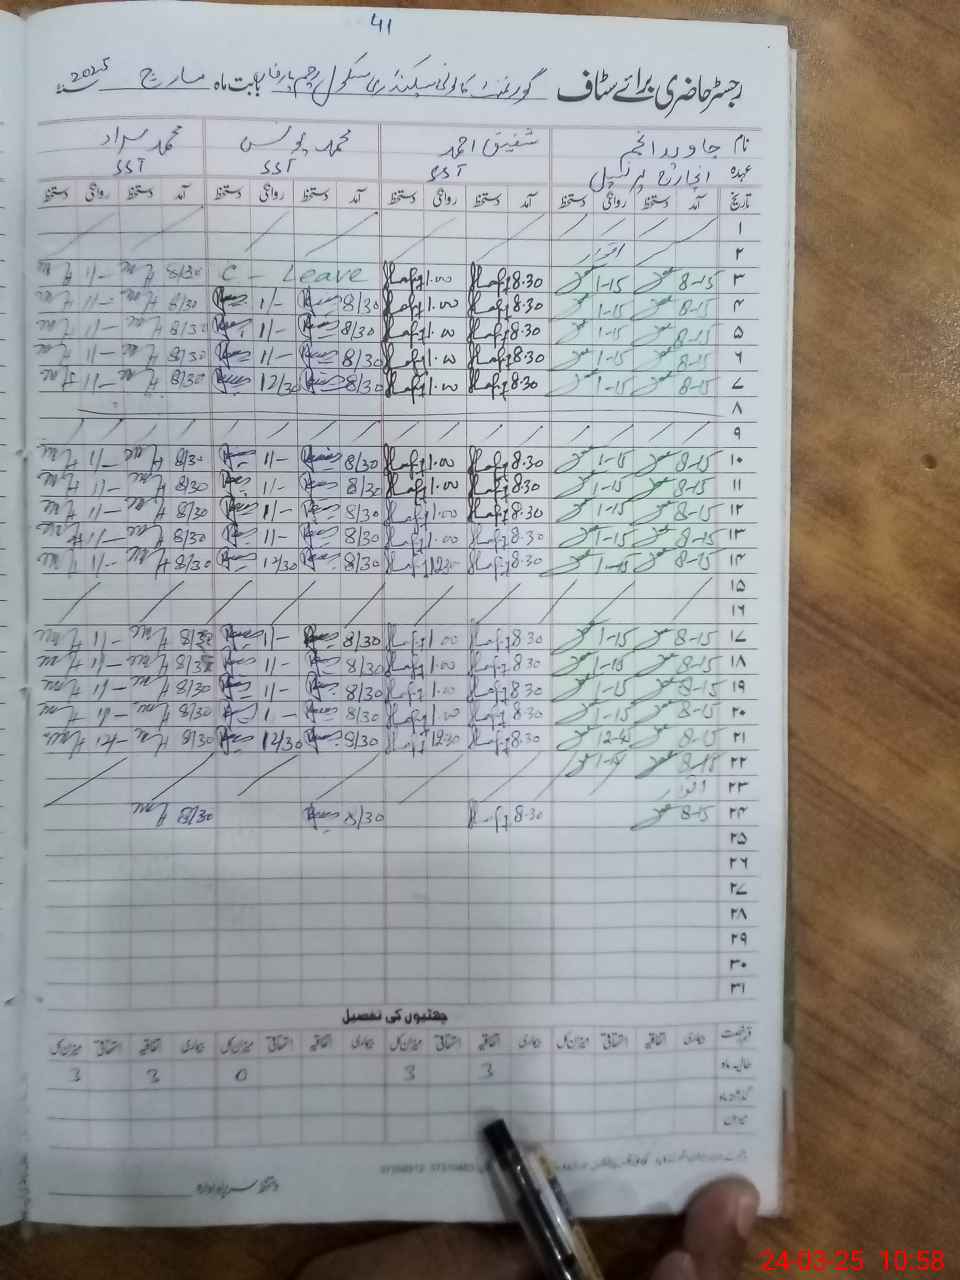 41
رجسٹر حاضری برائے سٹاف گورنمنٹ کالونی سیکنڈری سکول رحیم یار خان بابت ماہ مارچ 2025
نام جاوید انجم شفیق احمد محمد یونس محمد مراد
عہدہ انچارج پرنسپل SST SST SST
تاریخ آمد دستخط روانگی دستخط آمد دستخط روانگی دستخط آمد دستخط روانگی دستخط آمد دستخط روانگی دستخط
۱
۲ اتوار
۳ 8-15 1-15 8.30 1.00 C - Leave 8/30 1/-
۴ 8-15 1-15 8.30 1.00 8/30 1/- 8/30 1/-
۵ 8-15 1-15 8.30 1.00 8/30 1/- 8/30 1/-
۶ 8-15 1-15 8.30 1.00 8/30 1/- 8/30 1/-
۷ 8-15 1-15 8.30 1.00 8/30 12/30 8/30 1/-
۸
۹
۱۰ 8-15 1-15 8.30 1.00 8/30 1/- 8/30 1/-
۱۱ 8-15 1-15 8.30 1.00 8/30 1/- 8/30 1/-
۱۲ 8-15 1-15 8.30 1.00 8/30 1/- 8/30 1/-
۱۳ 8-15 1-15 8.30 1.00 8/30 1/- 8/30 1/-
۱۴ 8-15 1-15 8.30 12.30 8/30 12/30 8/30 1/-
۱۵
۱۶
۱۷ 8-15 1-15 8.30 1.00 8/30 1/- 8/30 1/-
۱۸ 8-15 1-15 8.30 1.00 8/30 1/- 8/30 1/-
۱۹ 8-15 1-15 8.30 1.00 8/30 1/- 8/30 1/-
۲۰ 8-15 1-15 8.30 1.00 8/30 1/- 8/30 1/-
۲۱ 8-15 12-45 8.30 12.30 8/30 12/30 8/30
۲۲ 8-15
۲۳ اتوار
۲۴ 8-15 8.30 8/30 8/30
۲۵
۲۶
۲۷
۲۸
۲۹
۳۰
۳۱
چھٹیوں کی تفصیل
رخصت بیماری اتفاقیہ استحقاقی میزان کل بیماری اتفاقیہ استحقاقی میزان کل بیماری اتفاقیہ استحقاقی میزان کل بیماری اتفاقیہ استحقاقی میزان کل
حالیہ ماہ 3 3 0 3 3
گذشتہ ماہ
میزان
دستخط سربراہ ادارہ
24-03-25 10:58